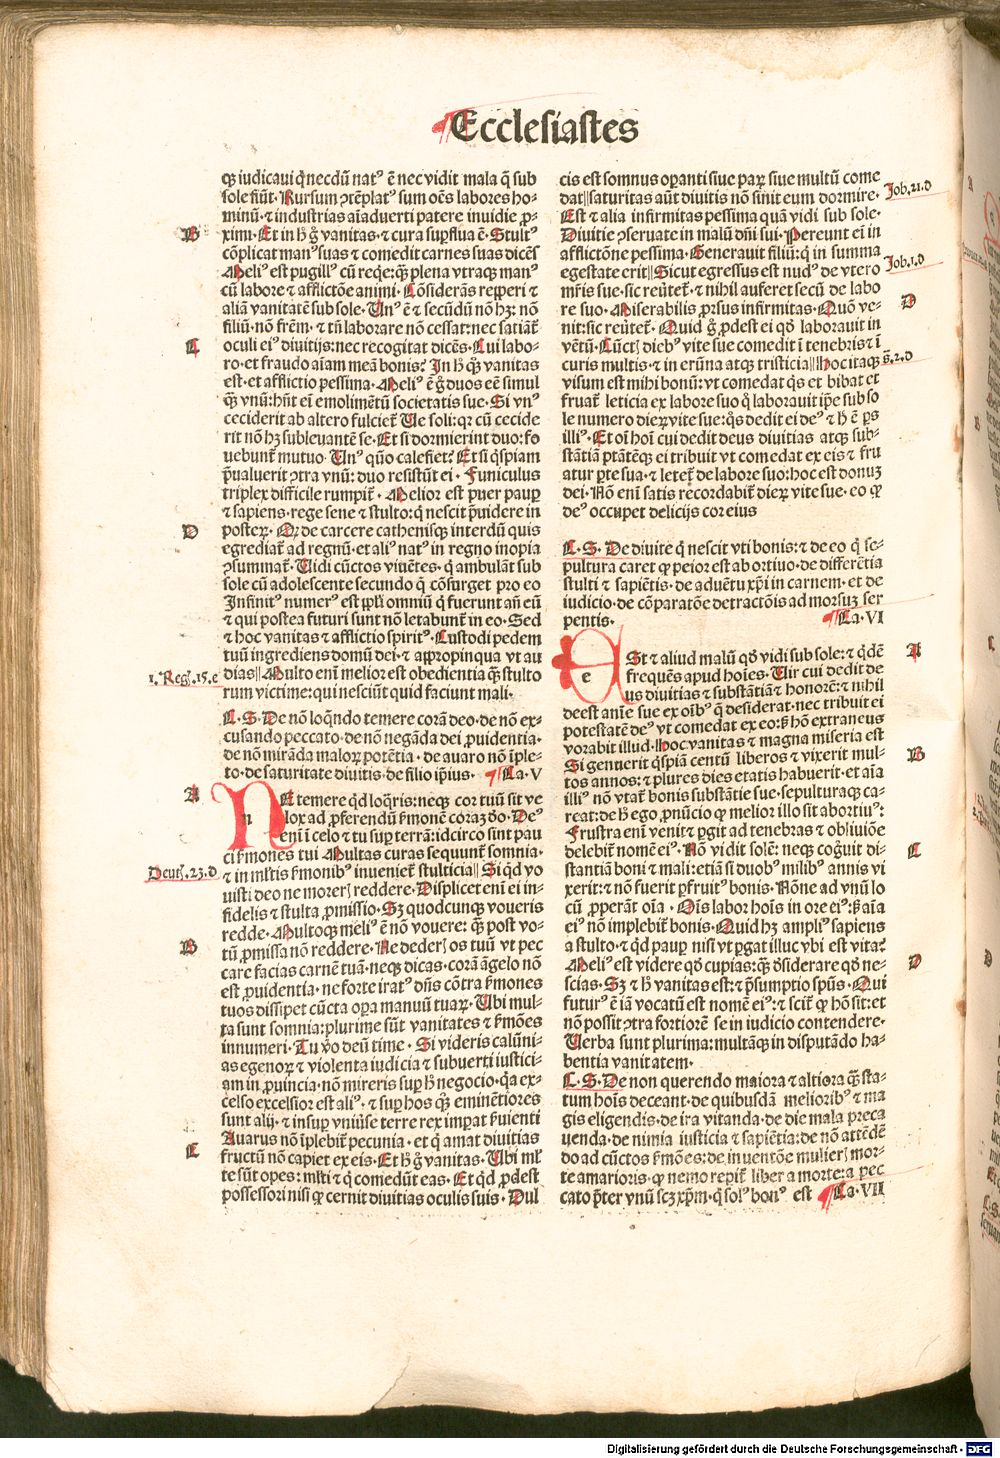 Ecclesiastes
qꝫ iudicaui q̄ necdū natꝰ ē nec vidit mala q̄ sub
sole fiūt. Rursum ↄtēplatꝰ sum oēs labores ho-
minū. ⁊ industrias aīaduerti patere inuidie ꝓ-
B
ximi. Et in h̄ ḡ vanitas. ⁊ cura suꝑflua ē. Stultꝰ
cōplicat manꝰ suas ⁊ comedit carnes suas dicēs
Meliꝰ est pugillꝰ cū reqe: qꝫ plena vtraqꝫ manꝰ
cū labore ⁊ afflictōe animi. Cōsiderās reꝑperi ⁊
aliā vanitatē sub sole. Unꝰ ē ⁊ secūdū nō hꝫ: nō
filiū. nō frēm. ⁊ tn̄ laborare nō cessat: nec satiāt̄
C
oculi eiꝰ diuitijs: nec recogitat dicēs. Cui labo-
ro. et fraudo aīam meā bonis? In h̄ qꝫ vanitas
est. et afflictio pessima. Meliꝰ ē ḡ duos eē simul
qꝫ vnū: hn̄t eī emolimētū societatis sue. Si vnꝰ
ceciderit ab altero fulciet̄ Ue soli: qꝛ cū cecide
rit nō hꝫ subleuantē se. Et si dormierint duo: fo
uebunt̄ mutuo. Unꝰ quō calefiet? Et si q̄spiam
p̄ualuerit ↄtra vnū: duo resistūt ei. Funiculus
triplex difficile rumpit̄. Melior est puer pauꝑ
⁊ sapiens. rege sene ⁊ stulto: q̄ nescit p̄uidere in
D
posteꝝ. Qꝛ de carcere cathenisqꝫ interdū quis
egrediat̄ ad regnū. et aliꝰ natꝰ in regno inopia
ↄsummat̄. Uidi cūctos viuētes. q̄ ambulāt sub
sole cū adolescente secundo q̄ cōsurget pro eo
Infinitꝰ numerꝰ est ppl̄i omniū q̄ fuerunt an̄ eū
⁊ qui postea futuri sunt nō letabunt̄ in eo. Sed
⁊ hoc vanitas ⁊ afflictio spiritꝰ. Custodi pedem
tuū ingrediens domū dei. ⁊ appropinqua vt au
1. Reg. 15. e
dias Multo enī melior est obedientia qꝫ stulto
rum victime: qui nesciūt quid faciunt mali.
C. S. De nō loq̄ndo temere corā deo. de nō ex-
cusando peccato. de nō negāda dei ꝓuidentia.
de nō mirāda maloꝝ potētia. de auaro nō īple-
to. de saturitate diuitis. de filio ip̄ius. Ca. V
A
NE temere qd loq̄ris: neqꝫ cor tuū sit ve
lox ad ꝓferendū ẜmonē coraꝫ do. Deꝰ
enī ī celo ⁊ tu suꝑ terrā: idcirco sint pau
ci ẜmones tui Multas curas sequunt̄ somnia.
Deut. 23. d
⁊ in ml̄tis ẜmonibꝰ inueniet̄ stulticia Si qd vo
uisti deo ne moreris reddere. Displicet enī ei in-
fidelis ⁊ stulta ꝓmissio. Sꝫ quodcunqꝫ voueris
redde. Multoqꝫ meliꝰ ē nō vouere: qꝫ post vo-
B
tū ꝓmissa nō reddere. Ne dederis os tuū vt pec
care facias carnē tuā. neqꝫ dicas. corā āgelo nō
est ꝓuidentia. ne forte iratꝰ dn̄s cōtra ẜmones
tuos dissipet cūcta oꝑa manuū tuaꝝ. Ubi mul-
ta sunt somnia: plurime sūt vanitates ⁊ ẜmōes
innumeri. Tu v̄o deū time. Si videris calūni-
as egenoꝝ ⁊ violenta iudicia ⁊ subuerti iustici-
am in ꝓuincia. nō mireris suꝑ h̄ negocio. qꝛ ex-
celso excelsior est aliꝰ. ⁊ suꝑ hos qꝫ eminētiores
sunt alij. ⁊ insuꝑ vniūse terre rex imꝑat ẜuienti
Auarus nō īplebit̄ pecunia. et q̄ amat diuitias
C
fructū nō capiet ex eis. Et h̄ ḡ vanitas. Ubi ml̄
te sūt opes: ml̄ti ⁊ q̄ comedūt eas. Et qd ꝓdest
possessori nisi ꝙ cernit diuitias oculis suis. Dul
cis est somnus oꝑanti siue paꝝ siue multū come
Job. 21. d
dat saturitas aūt diuitis nō sinit eum dormire.
Est ⁊ alia infirmitas pessima quā vidi sub sole.
Diuitie ↄseruate in malū dn̄i sui. Pereunt eī in
afflictōne pessima. Generauit filiū: q̄ in summa
Job. 1. d
egestate erit Sicut egressus est nudꝰ de vtero
mr̄is sue. sic reūtet̄. ⁊ nihil auferet secū de labo
D
re suo. Miserabilis ꝓrsus infirmitas. Quō ve-
nit: sic reūtet̄. Quid ḡ ꝓdest ei qd laborauit in
vētū. Cūctis diebꝰ vite sue comedit ī tenebris: ⁊ ī
s̄. 2. d
curis multis. ⁊ in erūna atqꝫ tristicia Hoc itaqꝫ
visum est mihi bonū: vt comedat q̄s et bibat et
fruat̄ leticia ex labore suo q̄ laborauit ip̄e sub so
le numero dieꝝ vite sue: q̄s dedit ei deꝰ ⁊ h̄ ē ꝑs
illiꝰ. Et oī hoī cui dedit deus diuitias atqꝫ sub-
stātiā ptātēqꝫ ei tribuit vt comedat ex eis ⁊ fru
atur ꝑte sua. ⁊ letet̄ de labore suo: hoc est donuꝫ
dei. Nō enī satis recordabit̄ dieꝝ vite sue. eo ꝙ
deꝰ occupet delicijs cor eius
C. S. De diuite q̄ nescit vti bonis: ⁊ de eo q̄ se-
pultura caret ꝙ peior est abortiuo. de differētia
stulti ⁊ sapiētis. de aduētu xp̄i in carnem. et de
iudicio. de cōparatōe detractōis ad morsuꝫ ser
pentis. Ca. VI
A
ESt ⁊ aliud malū qd vidi sub sole: ⁊ qdē
frequēs apud hoīes. Uir cui dedit de
us diuitias ⁊ substātiā ⁊ honorē: ⁊ nihil
deest anīe sue ex oībꝰ q̄ desiderat. nec tribuit ei
potestatē deꝰ vt comedat ex eo: ẜ hō extraneus
vorabit illud. Hoc vanitas ⁊ magna miseria est
B
Si genuerit q̄spiā centū liberos ⁊ vixerit mul-
tos annos: ⁊ plures dies etatis habuerit. et aīa
illiꝰ nō vtat̄ bonis substātie sue. sepulturaqꝫ ca-
reat: de h̄ ego ꝓnūcio ꝙ melior illo sit abortiuꝰ:
Frustra enī venit ⁊ ꝑgit ad tenebras ⁊ obliuiōe
C
delebit̄ nomē eiꝰ. Nō vidit solē: neqꝫ cogͦuit di-
stantiā boni ⁊ mali: etiā si duobꝰ milibꝰ annis vi
xerit: ⁊ nō fuerit ꝑfruitꝰ bonis. Nōne ad vnū lo
cū ꝓperāt oīa. Oīs labor hoīs in ore eiꝰ: ẜ aīa
eiꝰ nō implebit̄ bonis. Quid hꝫ ampliꝰ sapiens
a stulto. ⁊ qd pauꝑ nisi vt ꝑgat illuc vbi est vita?
D
Meliꝰ est videre qd cupias: qꝫ dsiderare qd ne-
scias. Sꝫ ⁊ h̄ vanitas est: ⁊ p̄sumptio spūs. Qui
futurꝰ ē iā vocatū est nomē eiꝰ: ⁊ scit̄ ꝙ hō sit: et
nō possit ↄtra fortiorē se in iudicio contendere.
Uerba sunt plurima: multāqꝫ in disputādo ha-
bentia vanitatem.
C. S. De non querendo maiora ⁊ altiora qꝫ sta-
tum hoīs deceant. de quibusdā melioribꝰ ⁊ ma
gis eligendis. de ira vitanda. de die mala preca
uenda. de nimia iusticia ⁊ sapiētia: de nō attēdē
do ad cūctos ẜmōes: de inuentōe mulieris mor-
te amarioris. ꝙ nemo repit̄ liber a morte: a pec
cato p̄ter vnū scꝫ xp̄m. q̄ solꝰ bonꝰ est Ca. VII
Digitalisierung gefördert durch die Deutsche Forschungsgemeinschaft - DFG